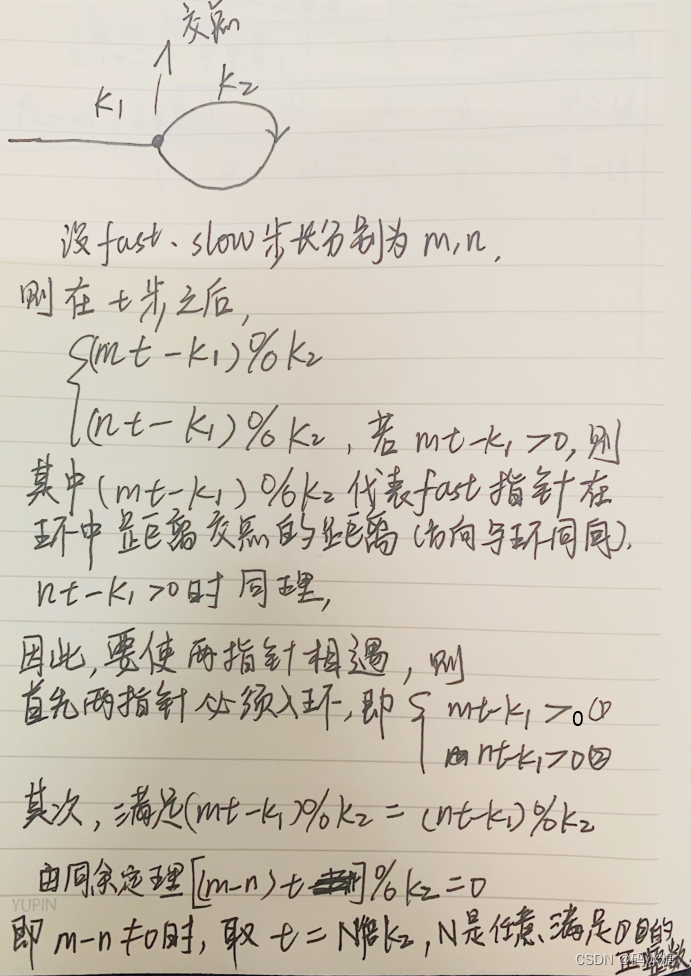 交点
K1
K2
设fast、slow步长分别为m,n,
则在t步之后,
{(mt-K1)%K2
(nt-K1)%K2,若mt-K1>0,则
其中(mt-K1)%K2代表fast指针在
环中距离交点的距离(方向与环同向).
nt-K1>0时同理,
因此,要使两指针相遇,则
首先两指针必须入环,即{mt-K1>0①
nt-K1>0②
其次,满足(mt-K1)%K2=(nt-K1)%K2
由同余定理[(m-n)t]%K2=0
即m-n≠0时,取t=NK2,N是任意满足①②的
正整数
YUPIN
CSDN